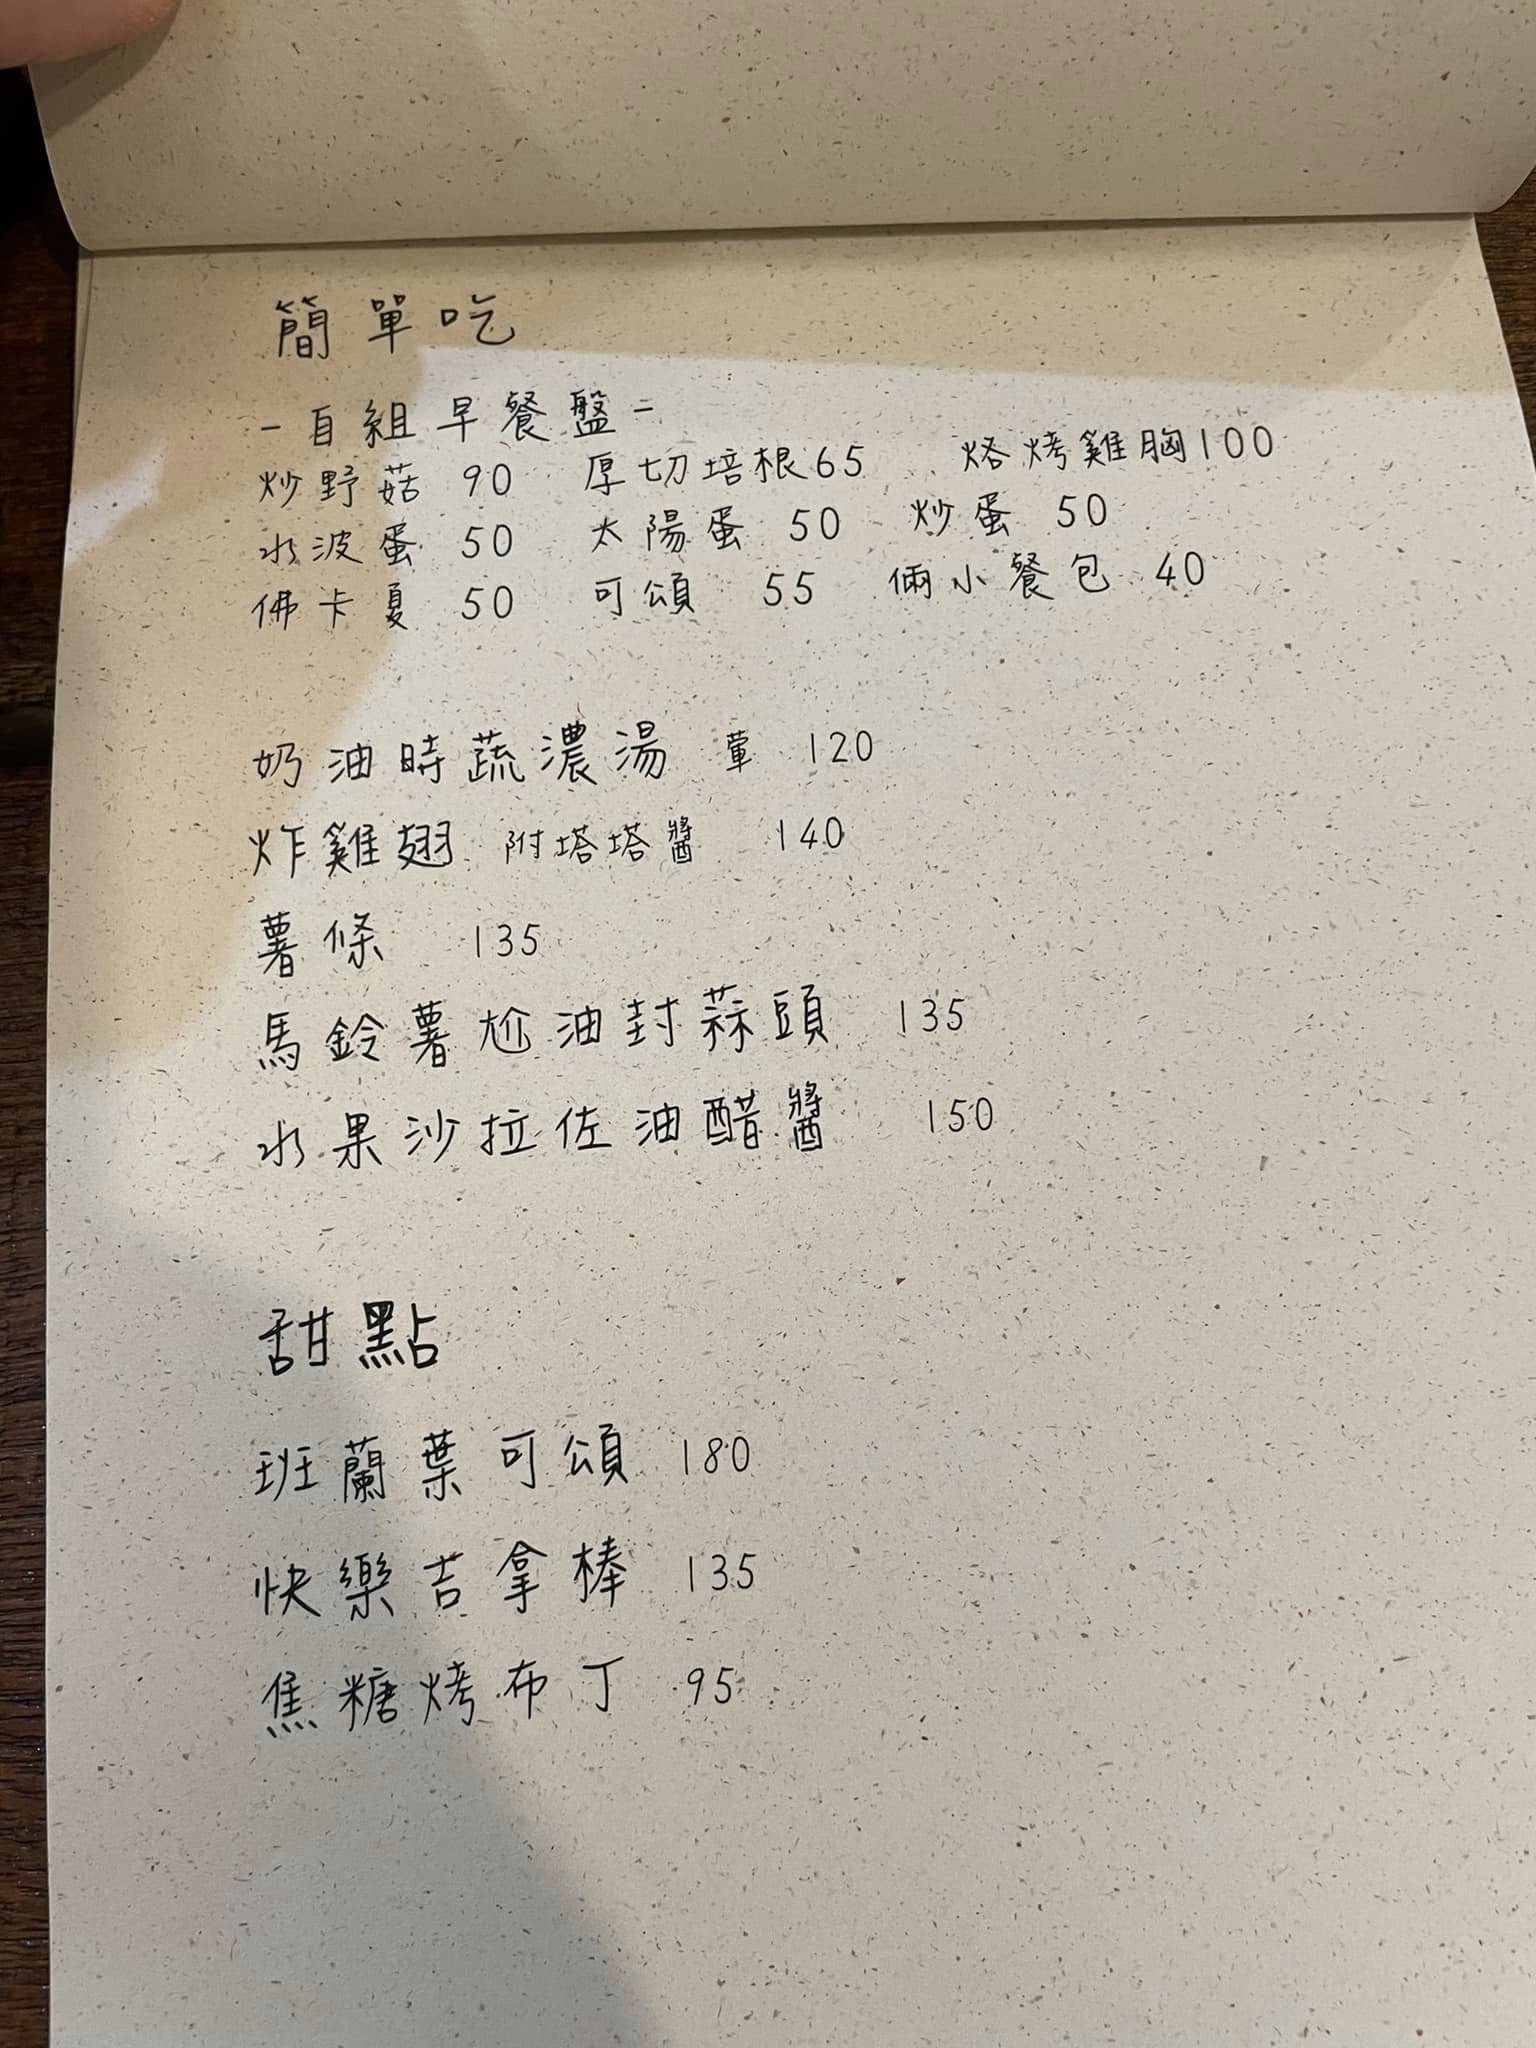 簡單吃
-自組早餐盤-
炒野菇 90 厚切培根65 烙烤雞胸100
水波蛋 50 太陽蛋 50 炒蛋 50
佛卡夏 50 可頌 55 倆小餐包 40
奶油時蔬濃湯 葷 120
炸雞翅 附塔塔醬 140
薯條 135
馬鈴薯尬油封蒜頭 135
水果沙拉佐油醋醬 150
甜點
班蘭葉可頌 180
快樂吉拿棒 135
焦糖烤布丁 95